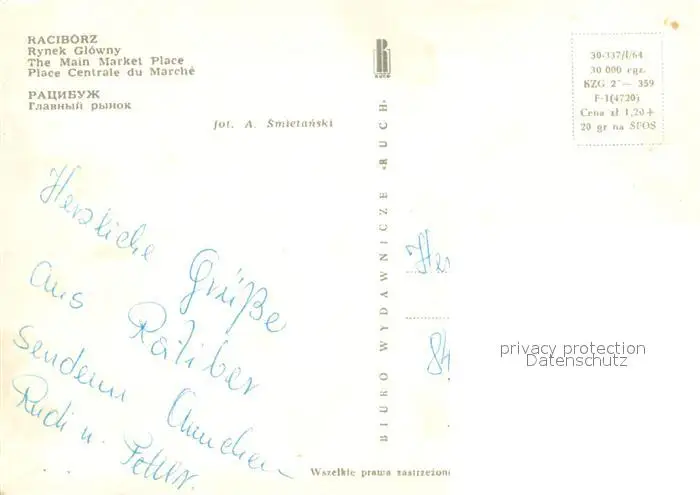 RACIBÓRZ
Rynek Główny
The Main Market Place
Place Centrale du Marché
РАЦИБУЖ
Главный рынок
fot. A. Śmietański
RUCH
BIURO WYDAWNICZE «RUCH»
30-337/I/64
30 000 egz.
KZG 2 — 359
F-1(4720)
Cena zł 1,20+
20 gr na SFOS
Herzliche Grüße
aus Ratibor
senden
Rudi u.
Her
St
privacy protection
Datenschutz
Wszelkie prawa zastrzeżon